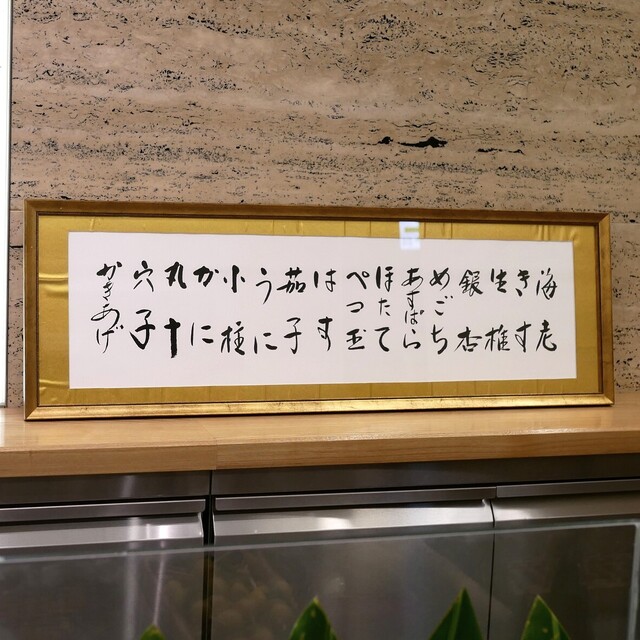 海老
きす
生椎
銀杏
めごち
あすぱら
ほたて
ぺコ玉
はす
茄子
うに
小柱
かに
丸十
穴子
かきあげ